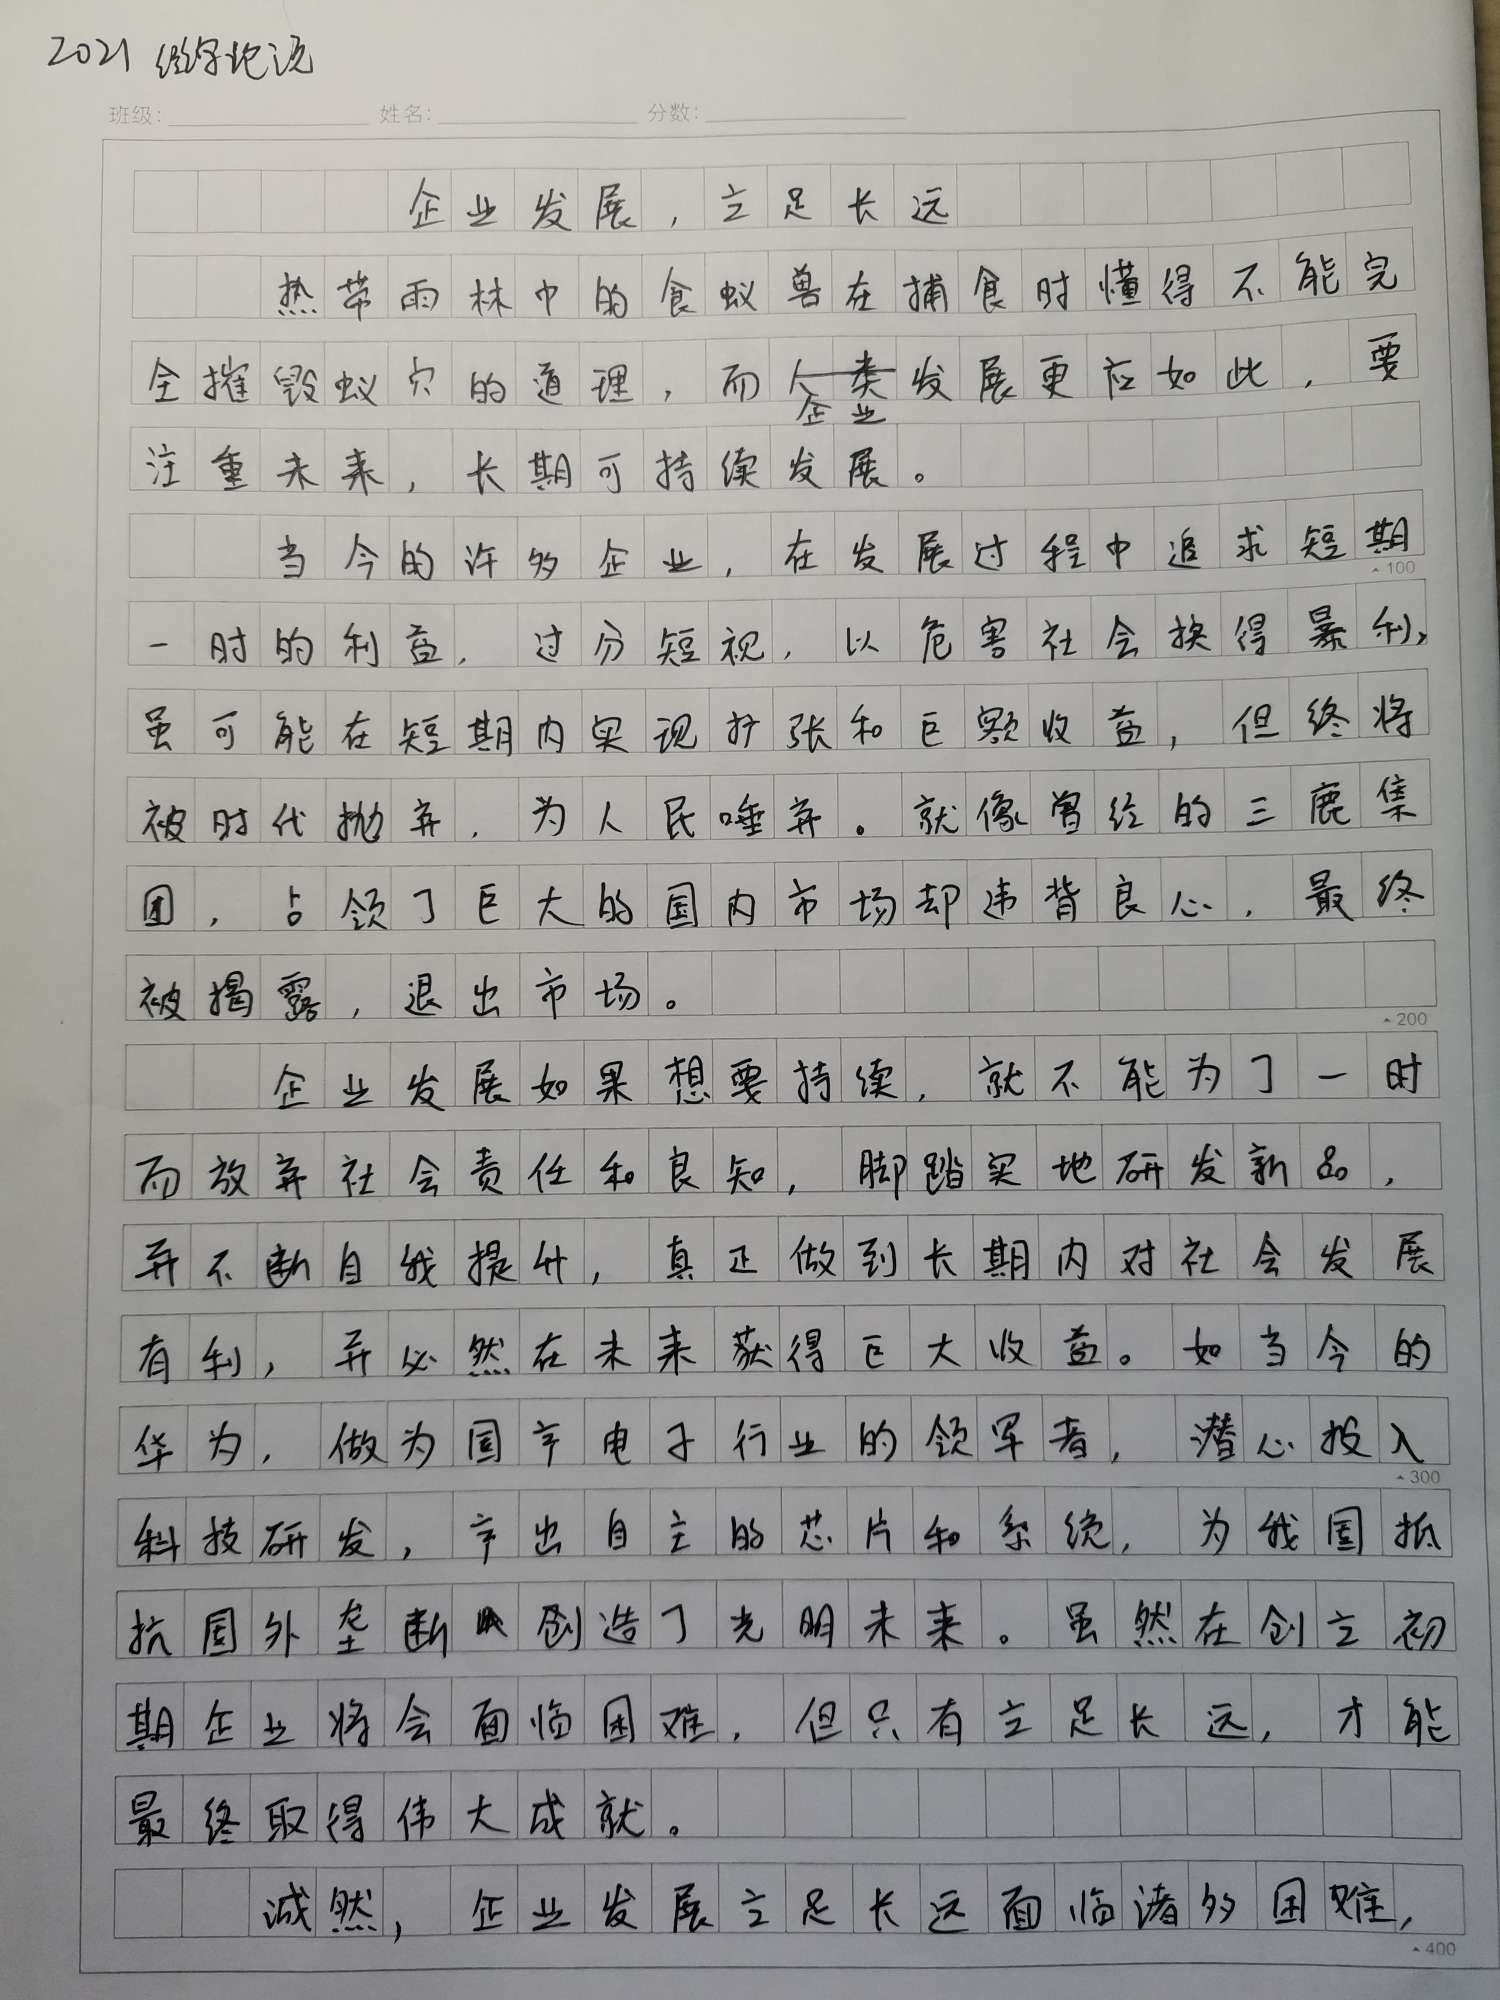 2021 经综论说
班级: 姓名: 分数:
企业发展,立足长远
热带雨林中的食蚁兽在捕食时懂得不能完
全摧毁蚁穴的道理,而人类发展更应如此,要
企业
注重未来,长期可持续发展。
当今的许多企业,在发展过程中追求短期
100
一时的利益,过分短视,以危害社会换得暴利,
虽可能在短期内实现扩张和巨额收益,但终将
被时代抛弃,为人民唾弃。就像曾经的三鹿集
团,占领了巨大的国内市场却违背良心,最终
被揭露,退出市场。
200
企业发展如果想要持续,就不能为了一时
而放弃社会责任和良知,脚踏实地研发新品,
并不断自我提升,真正做到长期内对社会发展
有利,并必然在未来获得巨大收益。如当今的
华为,做为国产电子行业的领军者,潜心投入
300
科技研发,产出自主的芯片和系统,为我国抵
抗国外垄断创造了光明未来。虽然在创立初
期企业将会面临困难,但只有立足长远,才能
最终取得伟大成就。
诚然,企业发展立足长远面临诸多困难,
400